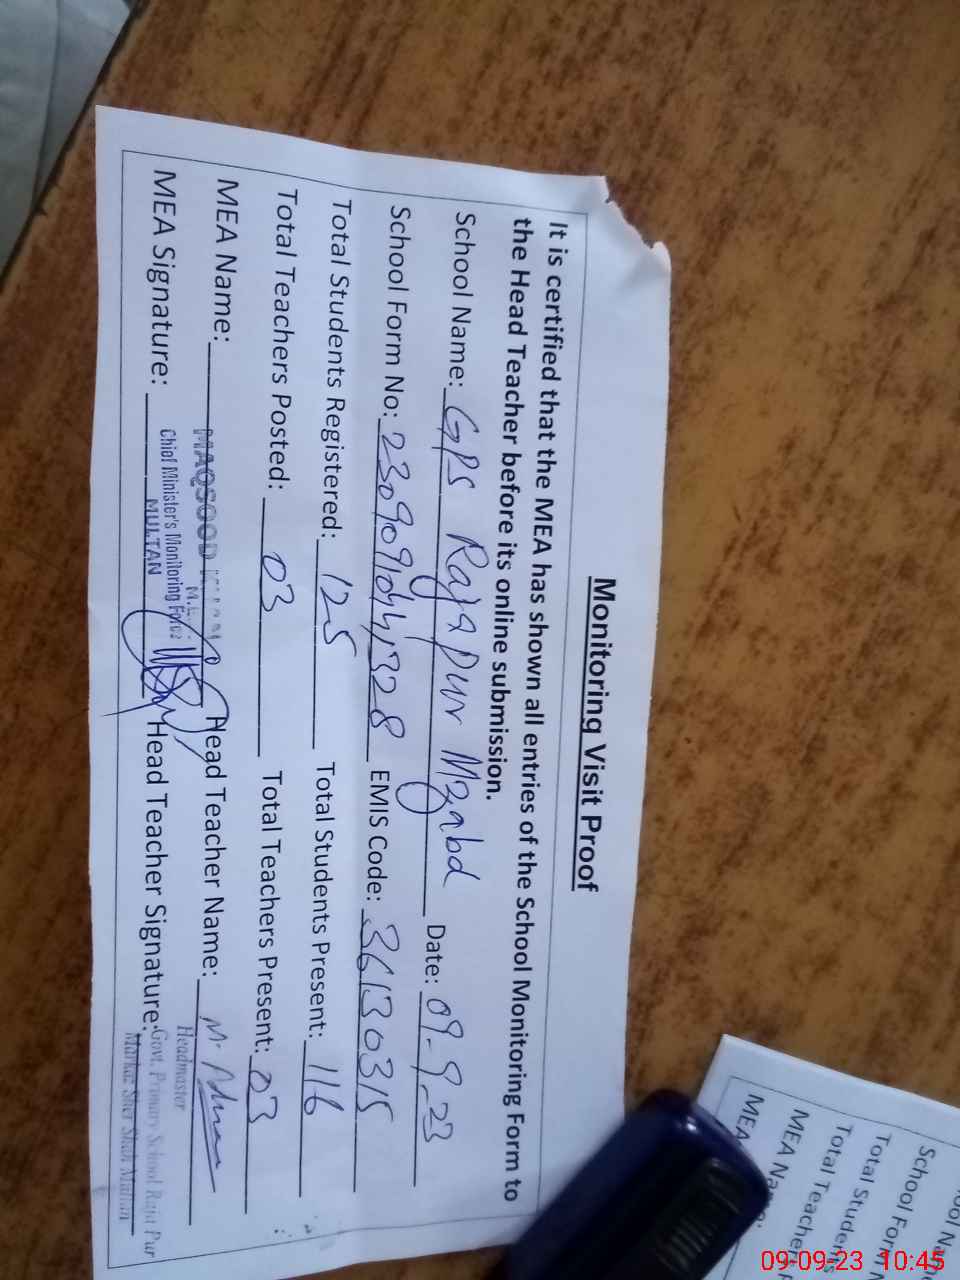 Monitoring Visit Proof
It is certified that the MEA has shown all entries of the School Monitoring Form to
the Head Teacher before its online submission.
School Name: GPS Raja Pur Mzabd Date: 09-9-23
School Form No: 23090904,1328 EMIS Code: 36130315
Total Students Registered: 125 Total Students Present: 116
Total Teachers Posted: 03 Total Teachers Present: 03
MEA Name: MAQSOOD Head Teacher Name: M. Adnan
Chief Minister's Monitoring Force
Headmaster
MEA Signature: MULTAN Head Teacher Signature: Govt. Primary School Raja Pur
Markaz Sher Shah Multan
School Nam
School Form N
Total Students
Total Teachers P
MEA Name:
MEA
09-09-23 10:45